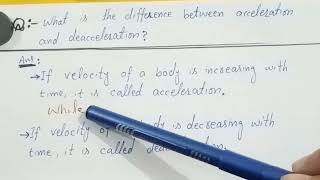 Q:- What is the difference between acceleration
and deacceleration?
Ans:
→ If velocity of a body is increasing with
time, it is called acceleration.
While
→ If velocity of body is decreasing with
time, it is called